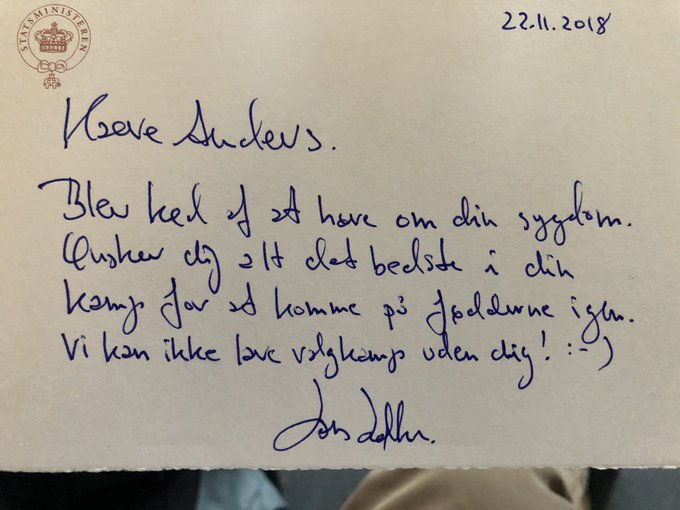 STATSMINISTEREN
22.11.2018
Kære Anders.
Blev ked af at høre om din sygdom.
Ønsker dig alt det bedste i din
kamp for at komme på fødderne igen.
Vi kan ikke lave valgkamp uden dig! :-)
Lars Løkke.